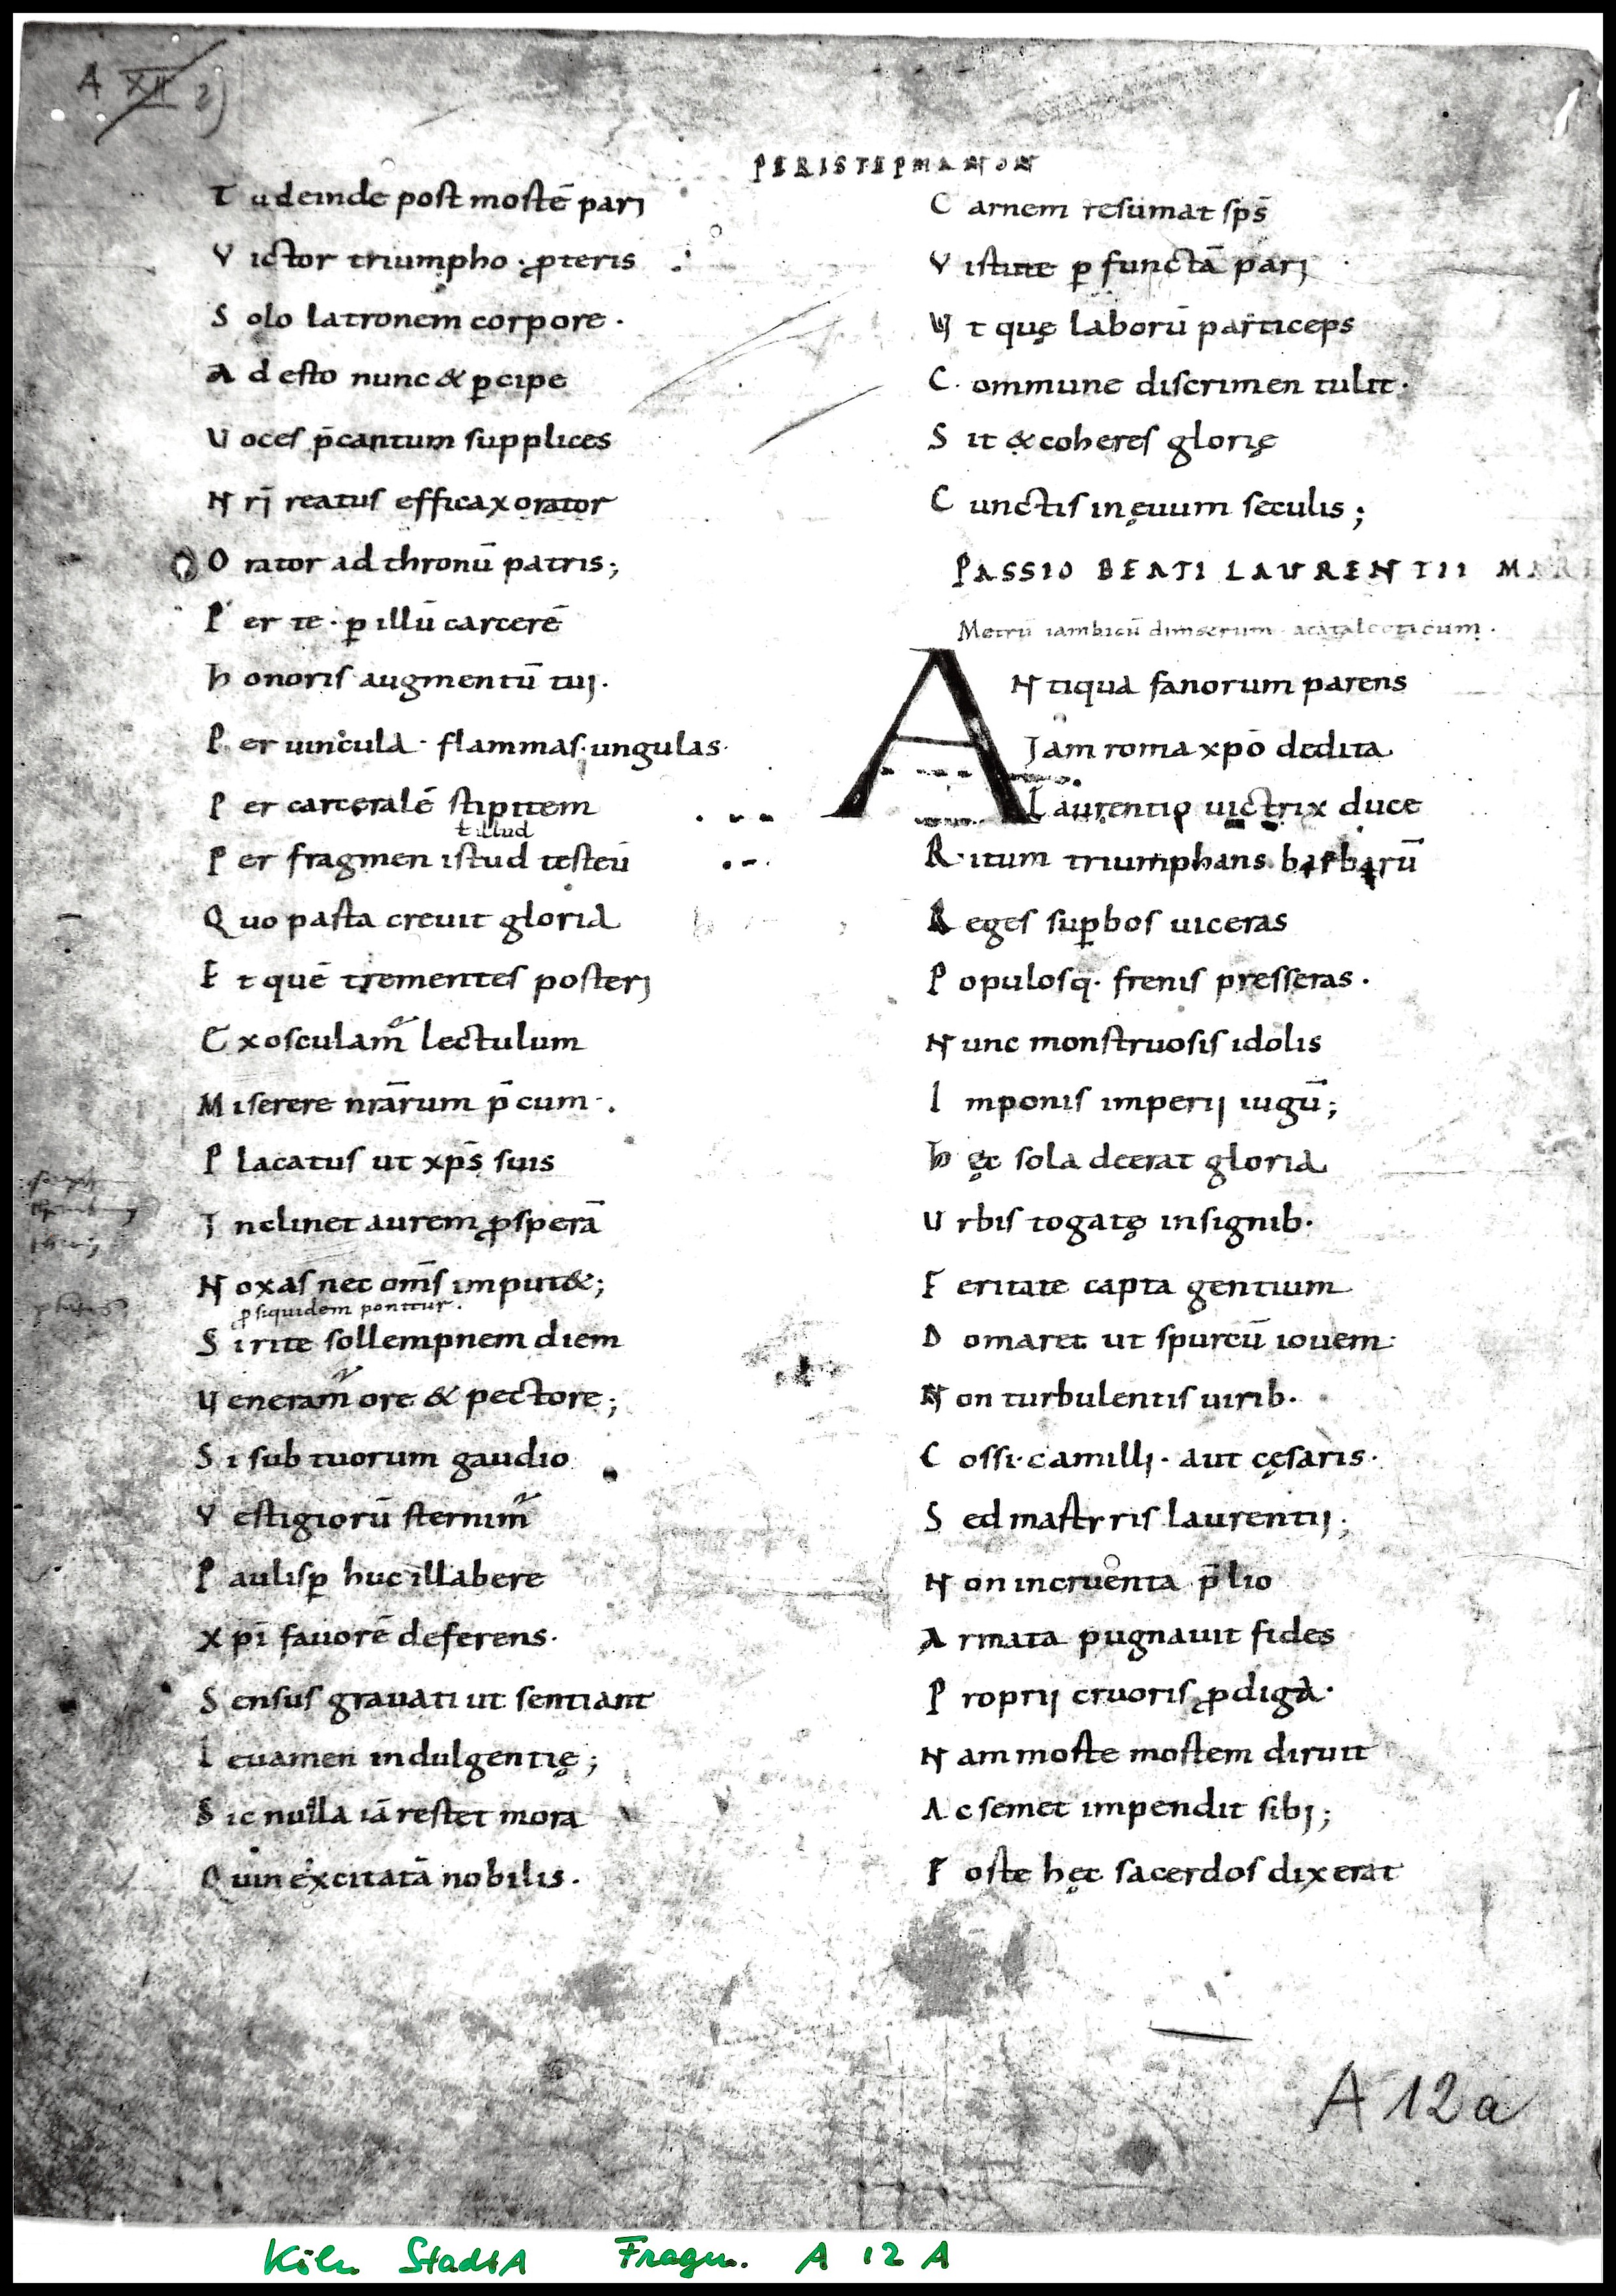 A XII 2)
PERISTEPMANON
T u deinde post mortē pari
V ictor triumpho · ꝓteris
S olo latronem corpore ·
A d esto nunc & ꝑcipe
U oces p̄cantum supplices
N r̄i reatus efficax orator
O rator ad thronū patris;
P er te · ꝑ illū carcerē
H onoris augmentū tui ·
P er uincula · flammas · ungulas ·
P er carceralē stipitem
ł illud
P er fragmen istud testeū
Q uo parta creuit gloria
E t quē trementes posteri
E xosculam̄ lectulum
M iserere nr̄arum p̄cum ·
P lacatus ut xp̄s suis
I nclinet aurem ꝓsperā
N oxas nec om̄s imput&;
ꝓ siquidem ponitur ·
S i rite sollempnem diem
U eneram̄ ore & pectore;
S i sub tuorum gaudio
V estigiorū sternim̄
P aulisꝑ huc illabere
X p̄i fauorē deferens ·
S ensus grauati ut sentiant
L euamen indulgentię;
S ic nulla iā restet mora
Q uin excitatā nobilis ·
C arnem resumat sp̄s
V irtute ꝑfunctā pari
U t quę laborū particeps
C ommune discrimen tulit ·
S it & coheres glorię
C unctis in ęuum seculis;
PASSIO BEATI LAURENTII MARI
Metrū iambicū dimetrum acatalecticum ·
A N tiqua fanorum parens
Iam roma xp̄o dedita
Laurentio uictrix duce
R itum triumphans barbarū
R eges suꝑbos uiceras
P opulosq · frenis presseras ·
N unc monstruosis idolis
I mponis imperii iugū;
H ęc sola deerat gloria
U rbis togatę insignib ·
F eritate capta gentium
D omaret ut spurcū iouem ·
N on turbulentis uirib ·
C ossi · camilli · aut cęsaris ·
S ed martyris laurentii;
N on incruenta p̄lio
A rmata pugnauit fides
P roprii cruoris ꝓdiga ·
N am morte mortem diruit
A c semet impendit sibi;
F orte hęc sacerdos dixerat
A 12 a
Köln StadtA Fragm. A 12 A